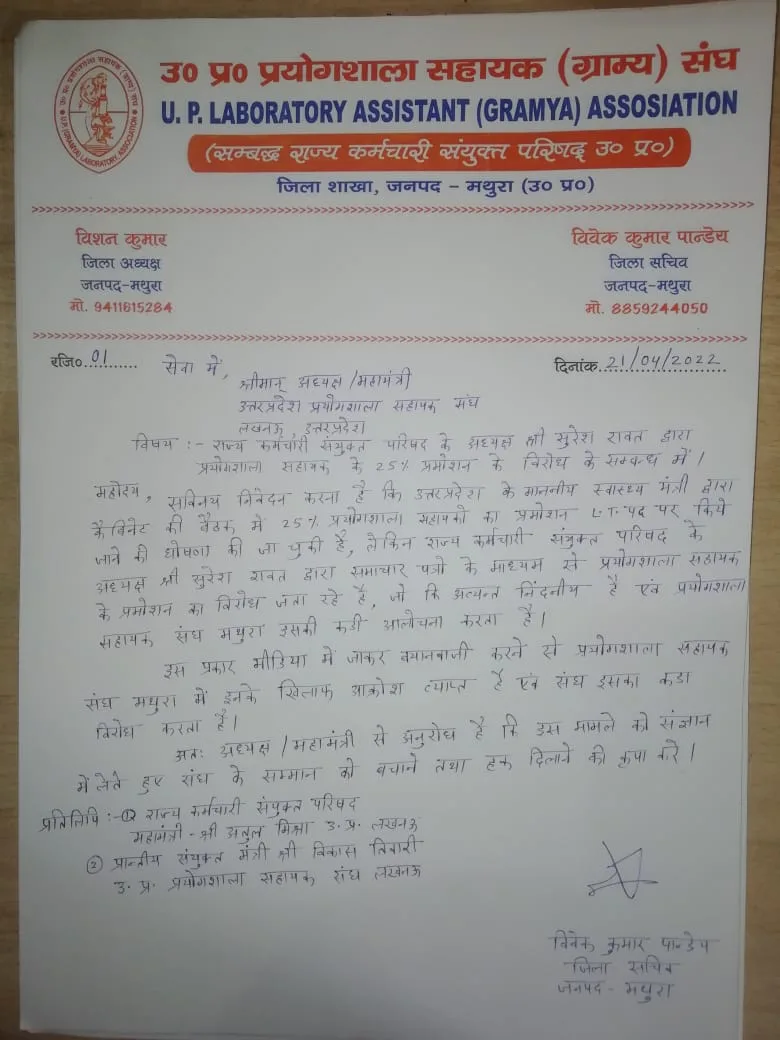 उ० प्र० प्रयोगशाला सहायक (ग्राम्य) संघ
U. P. LABORATORY ASSISTANT (GRAMYA) ASSOSIATION
(सम्बद्ध राज्य कर्मचारी संयुक्त परिषद् उ० प्र०)
जिला शाखा, जनपद - मथुरा (उ० प्र०)
विशन कुमार
जिला अध्यक्ष
जनपद-मथुरा
मो. 9411615284
विवेक कुमार पान्डेय
जिला सचिव
जनपद-मथुरा
मो. 8859244050
रजि० 01
दिनांक 21/04/2022
सेवा में,
श्रीमान् अध्यक्ष/महामंत्री
उत्तरप्रदेश प्रयोगशाला सहायक संघ
लखनऊ, उत्तरप्रदेश
विषय :- राज्य कर्मचारी संयुक्त परिषद के अध्यक्ष श्री सुरेश रावत द्वारा
प्रयोगशाला सहायक के 25% प्रमोशन के विरोध के सम्बन्ध में।
महोदय, सविनय निवेदन करना है कि उत्तरप्रदेश के माननीय स्वास्थ्य मंत्री द्वारा
कैबिनेट की बैठक में 25% प्रयोगशाला सहायको का प्रमोशन L.T. पद पर किये
जाने की घोषणा की जा चुकी है, लेकिन राज्य कर्मचारी संयुक्त परिषद के
अध्यक्ष श्री सुरेश रावत द्वारा समाचार पत्रो के माध्यम से प्रयोगशाला सहायक
के प्रमोशन का विरोध जता रहे है, जो कि अत्यन्त निंदनीय है एवं प्रयोगशाला
सहायक संघ मथुरा उसकी कडी आलोचना करता है।
इस प्रकार मीडिया में जाकर बयानबाजी करने से प्रयोगशाला सहायक
संघ मथुरा में इनके खिलाफ आक्रोश व्याप्त है एवं संघ इसका कडा
विरोध करता है।
अतः अध्यक्ष/महामंत्री से अनुरोध है कि इस मामले को संज्ञान
में लेते हुए संघ के सम्मान को बचाने तथा हक दिलाने की कृपा करे।
प्रतिलिपि :- ① राज्य कर्मचारी संयुक्त परिषद
महामंत्री - श्री अतुल मिश्रा उ. प्र. लखनऊ
② प्रान्तीय संयुक्त मंत्री श्री विकास तिवारी
उ. प्र. प्रयोगशाला सहायक संघ लखनऊ
विवेक कुमार पान्डेय
जिला सचिव
जनपद - मथुरा